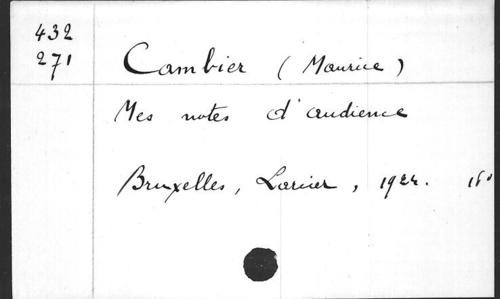 432
271
Cambier (Maurice)
Mes notes d'audience
Bruxelles, Larcier, 1924.